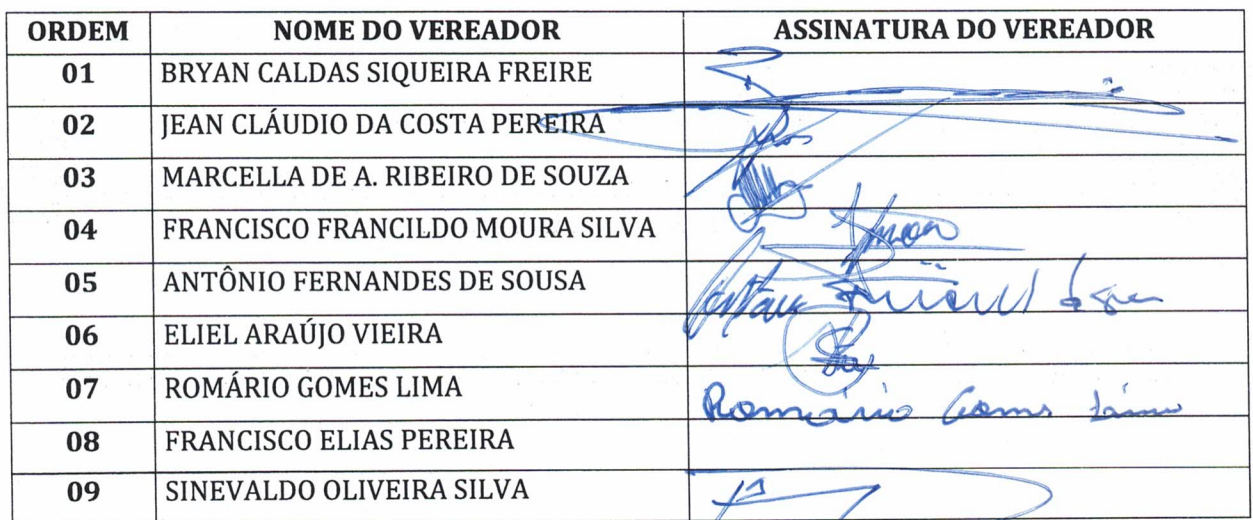 ORDEM NOME DO VEREADOR ASSINATURA DO VEREADOR
01 BRYAN CALDAS SIQUEIRA FREIRE
02 JEAN CLÁUDIO DA COSTA PEREIRA
03 MARCELLA DE A. RIBEIRO DE SOUZA
04 FRANCISCO FRANCILDO MOURA SILVA
05 ANTÔNIO FERNANDES DE SOUSA
06 ELIEL ARAÚJO VIEIRA
07 ROMÁRIO GOMES LIMA Romário Gomes Lima
08 FRANCISCO ELIAS PEREIRA
09 SINEVALDO OLIVEIRA SILVA